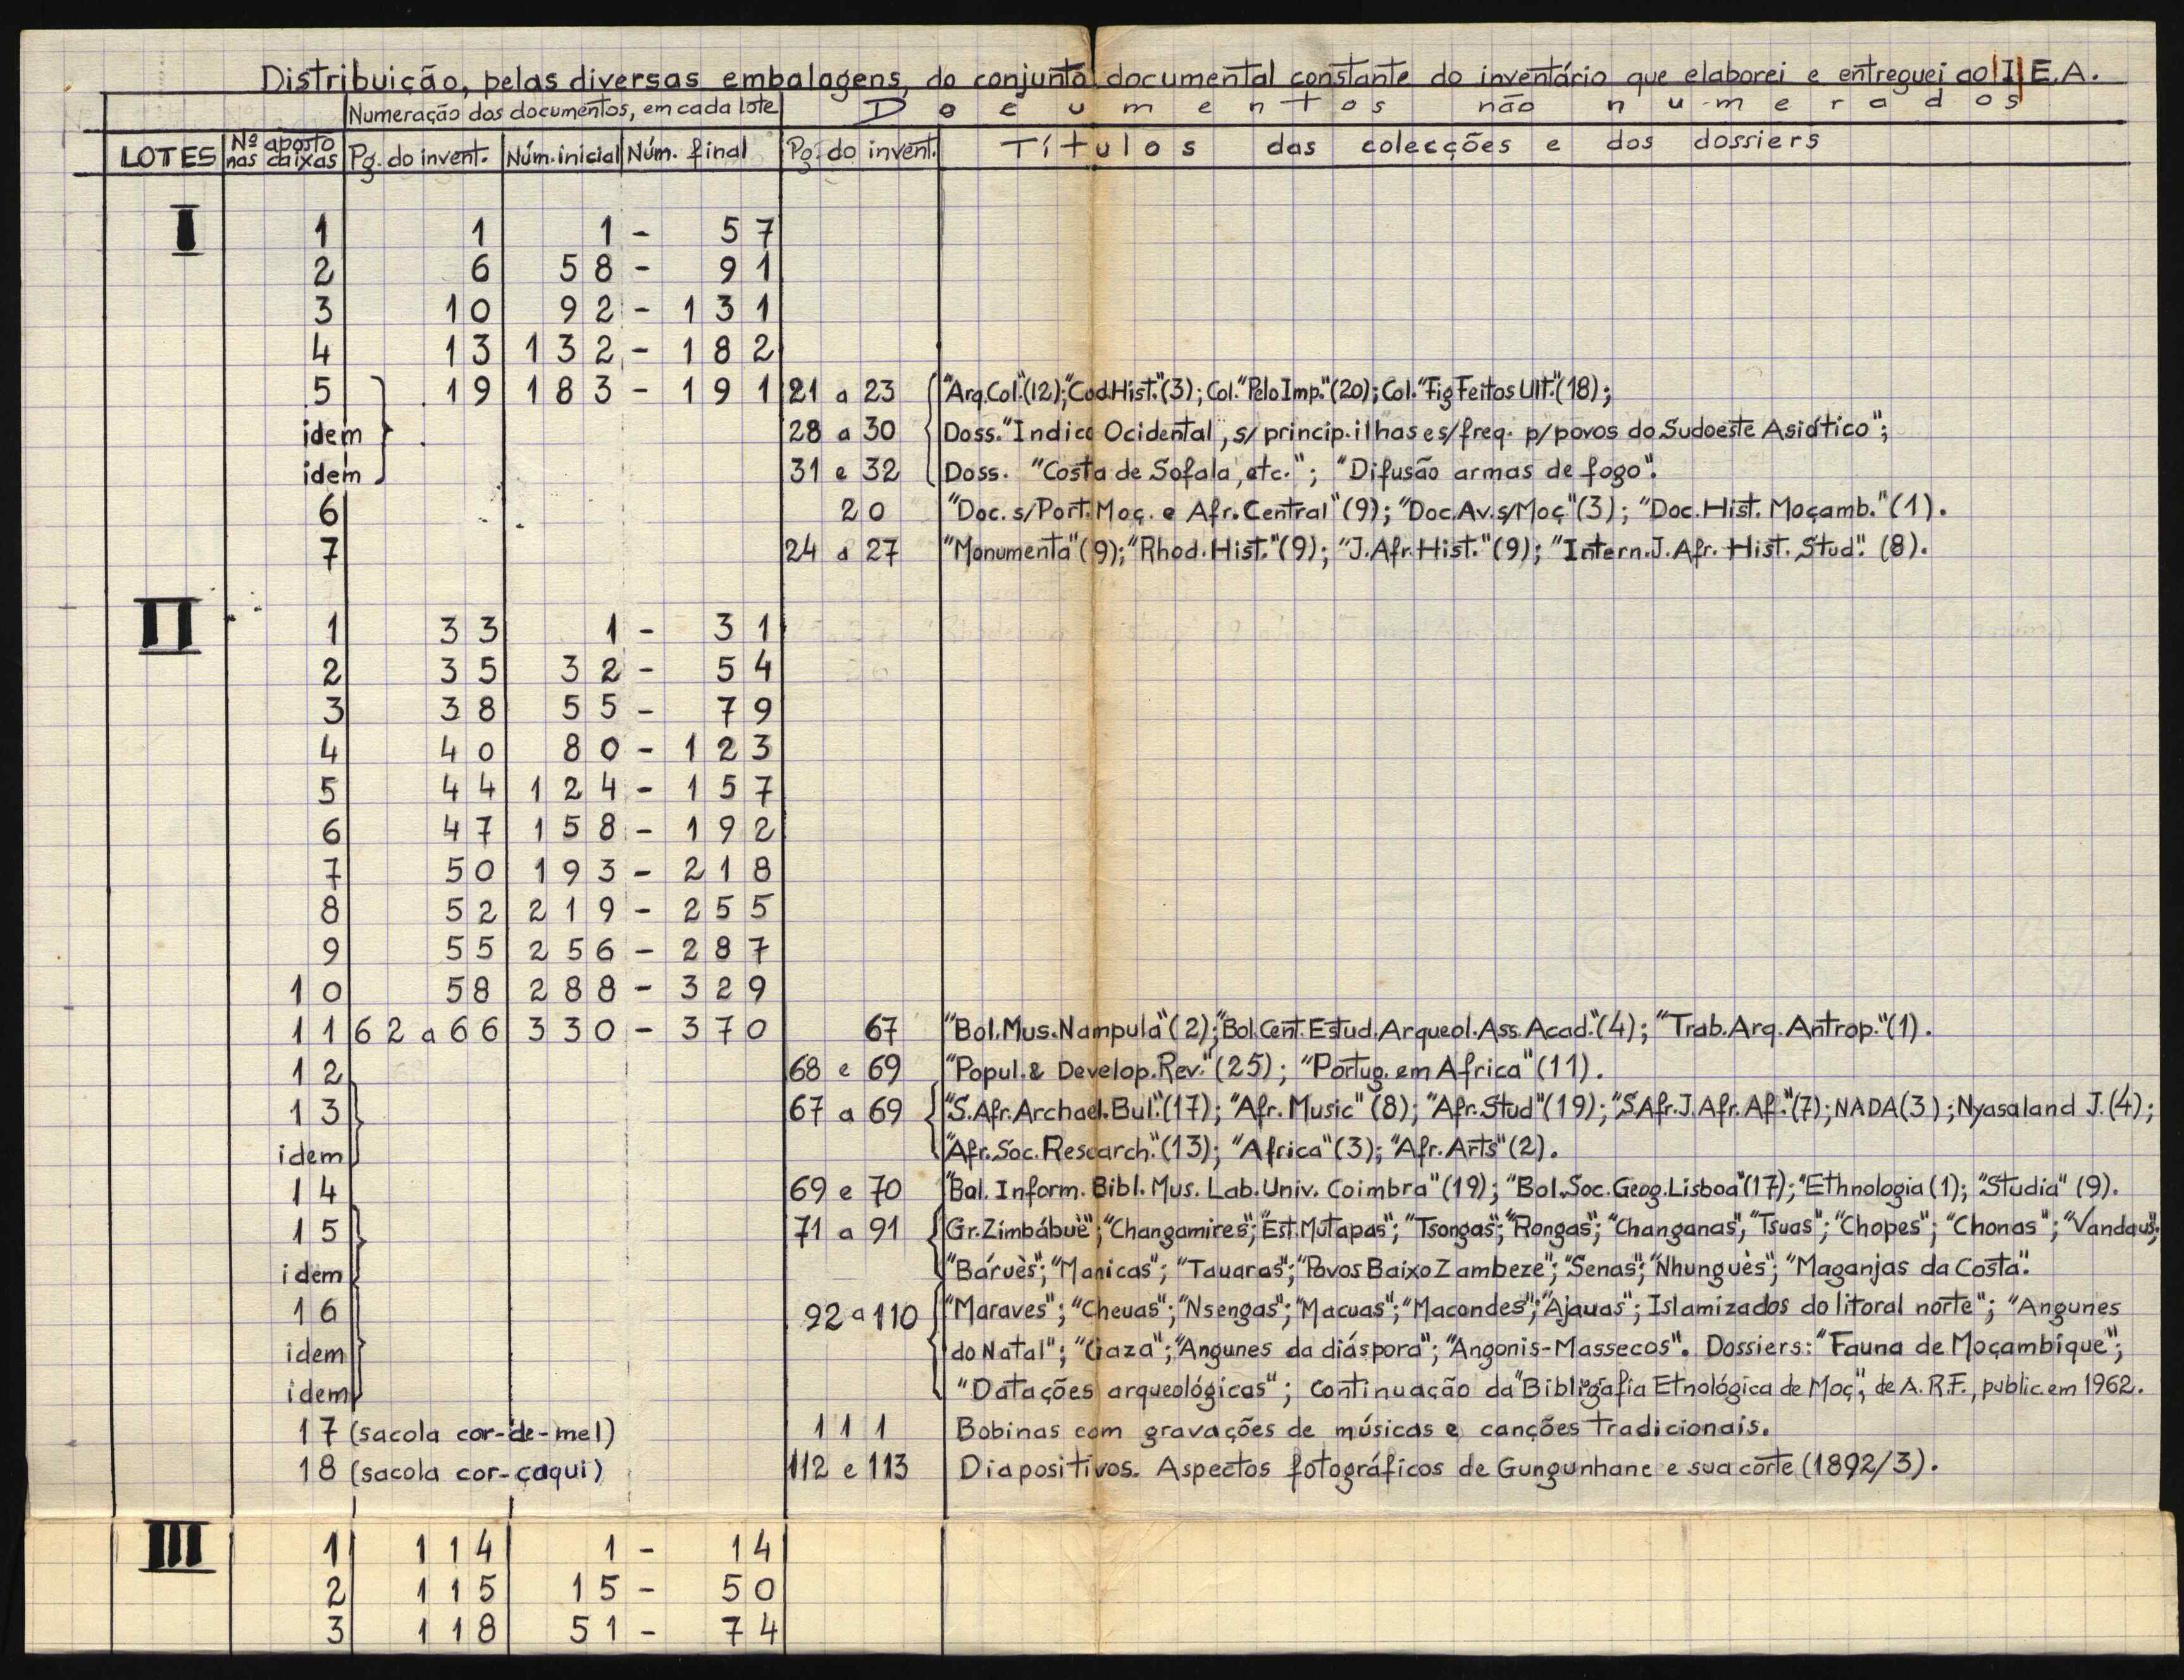 Distribuição, pelas diversas embalagens, do conjunto documental constante do inventário que elaborei e entreguei ao I.I.E.A.
Numeração dos documentos, em cada lote D o c u m e n t o s não n u m e r a d o s
LOTES Nº aposto nas caixas Pg. do invent. Núm. inicial Núm. final Pg. do invent. Títulos das colecções e dos dossiers
I 1 1 1 - 57
2 6 58 - 91
3 10 92 - 131
4 13 132 - 182
5 19 183 - 191 21 a 23 "Arq.Col."(12); "Cod.Hist."(3); Col. "Pelo Imp."(20); Col. "Fig Feitos Ult."(18);
idem 28 a 30 Doss. "Indico Ocidental, s/ princip. ilhas es/freq. p/povos do Sudoeste Asiático";
idem 31 e 32 Doss. "Costa de Sofala, etc."; "Difusão armas de fogo".
6 20 "Doc. s/Port. Moç. e Afr. Central" (9); "Doc. Av. s/Moç" (3); "Doc. Hist. Moçamb." (1).
7 24 a 27 "Monumenta" (9); "Rhod. Hist." (9); "J. Afr. Hist." (9); "Intern. J. Afr. Hist. Stud." (8).
II 1 33 1 - 31
2 35 32 - 54
3 38 55 - 79
4 40 80 - 123
5 44 124 - 157
6 47 158 - 192
7 50 193 - 218
8 52 219 - 255
9 55 256 - 287
10 58 288 - 329
11 62 a 66 330 - 370 67 "Bol. Mus. Nampula" (2); "Bol. Cent. Estud. Arqueol. Ass. Acad." (4); "Trab. Arq. Antrop." (1).
12 68 e 69 "Popul. & Develop. Rev." (25); "Portug. em Africa" (11).
13 67 a 69 "S. Afr. Archael. Bul." (17); "Afr. Music" (8); "Afr. Stud" (19); "S. Afr. J. Afr. Af." (7); NADA (3); Nyasaland J. (4);
idem "Afr. Soc. Research." (13); "Africa" (3); "Afr. Arts" (2).
14 69 e 70 "Bol. Inform. Bibl. Mus. Lab. Univ. Coimbra" (19); "Bol. Soc. Geog. Lisboa" (17); "Ethnologia (1); "Studia" (9).
15 71 a 91 Gr. Zimbábuè"; "Changamires"; "Est. Mutapas"; "Tsongas"; "Rongas"; "Changanas", "Tsuas"; "Chopes"; "Chonas"; "Vandaus";
idem "Báruès"; "Manicas"; "Tauaras"; "Povos Baixo Zambeze"; "Senas"; "Nhunguès"; "Maganjas da Costa".
16 92 a 110 "Maraves"; "Cheuas"; "Nsengas"; "Macuas"; "Macondes"; "Ajauas"; Islamizados do litoral norte"; "Angunes
idem do Natal"; "Gaza"; "Angunes da diáspora"; "Angonis-Massecos". Dossiers: "Fauna de Moçambique";
idem "Datações arqueológicas"; Continuação da "Bibliografia Etnológica de Moç", de A.R.F., public. em 1962.
17 (sacola cor-de-mel) 111 Bobinas com gravações de músicas e canções tradicionais.
18 (sacola cor-çaqui) 112 e 113 Diapositivos. Aspectos fotográficos de Gungunhane e sua côrte (1892/3).
III 1 114 1 - 14
2 115 15 - 50
3 118 51 - 74